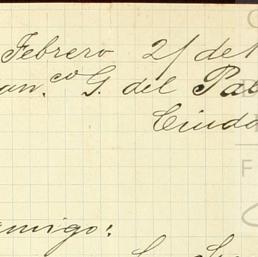 Febrero 21 de 1
an.co G. del Pa
Ciuda
amigo: